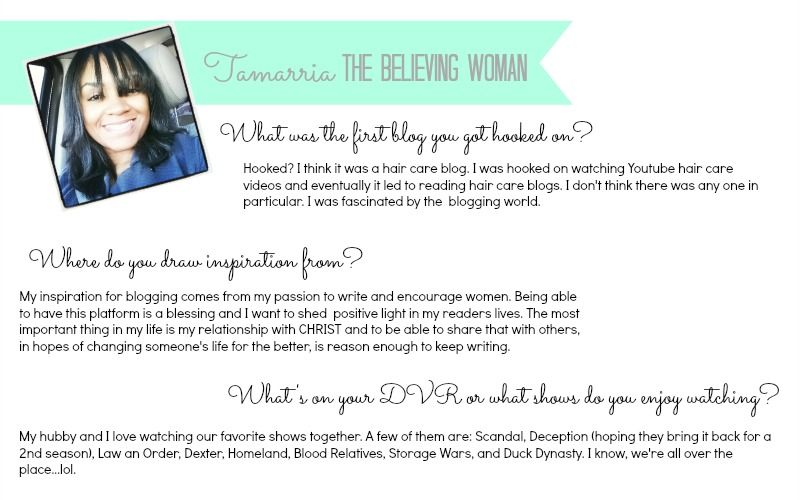 Tamarria THE BELIEVING WOMAN
What was the first blog you got hooked on?
Hooked? I think it was a hair care blog. I was hooked on watching Youtube hair care
videos and eventually it led to reading hair care blogs. I don't think there was any one in
particular. I was fascinated by the blogging world.
Where do you draw inspiration from?
My inspiration for blogging comes from my passion to write and encourage women. Being able
to have this platform is a blessing and I want to shed positive light in my readers lives. The most
important thing in my life is my relationship with CHRIST and to be able to share that with others,
in hopes of changing someone's life for the better, is reason enough to keep writing.
What's on your DVR or what shows do you enjoy watching?
My hubby and I love watching our favorite shows together. A few of them are: Scandal, Deception (hoping they bring it back for a
2nd season), Law an Order, Dexter, Homeland, Blood Relatives, Storage Wars, and Duck Dynasty. I know, we're all over the
place...lol.